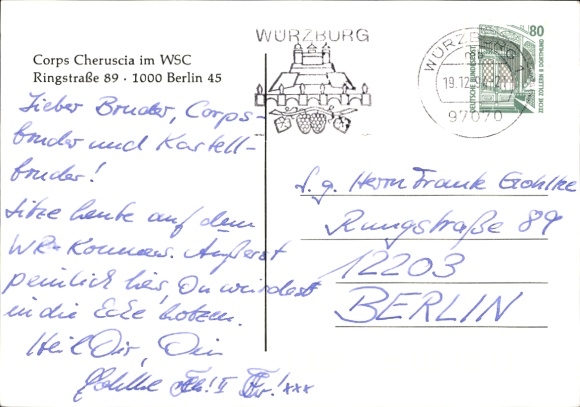 Corps Cheruscia im WSC
Ringstraße 89 · 1000 Berlin 45
Lieber Bruder, Corps-
bruder und Kartell-
bruder!
Sitze heute auf dem
WR-Kommers. Äußerst
peinlich hier, Du würdest
in die Ecke kotzen.
Heil Dir, Dein
WÜRZBURG
WÜRZBURG
19.12.
97070
80
DEUTSCHE BUNDESPOST
ZECHE ZOLLERN II DORTMUND
S. g. Herrn Frank
Ringstraße 89
12203
BERLIN